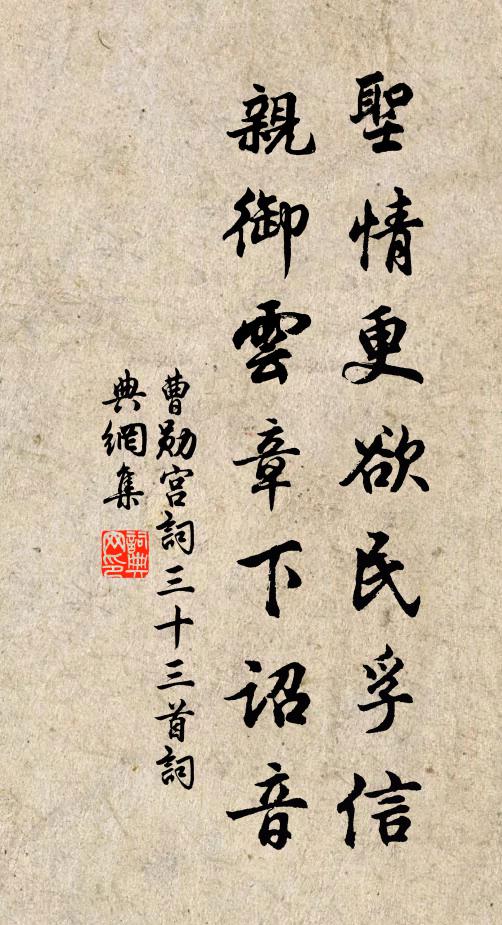 聖情更欲民孚信
親御雲章下詔音
曹勛宮詞三十三首詞
典網集
詞典
网印